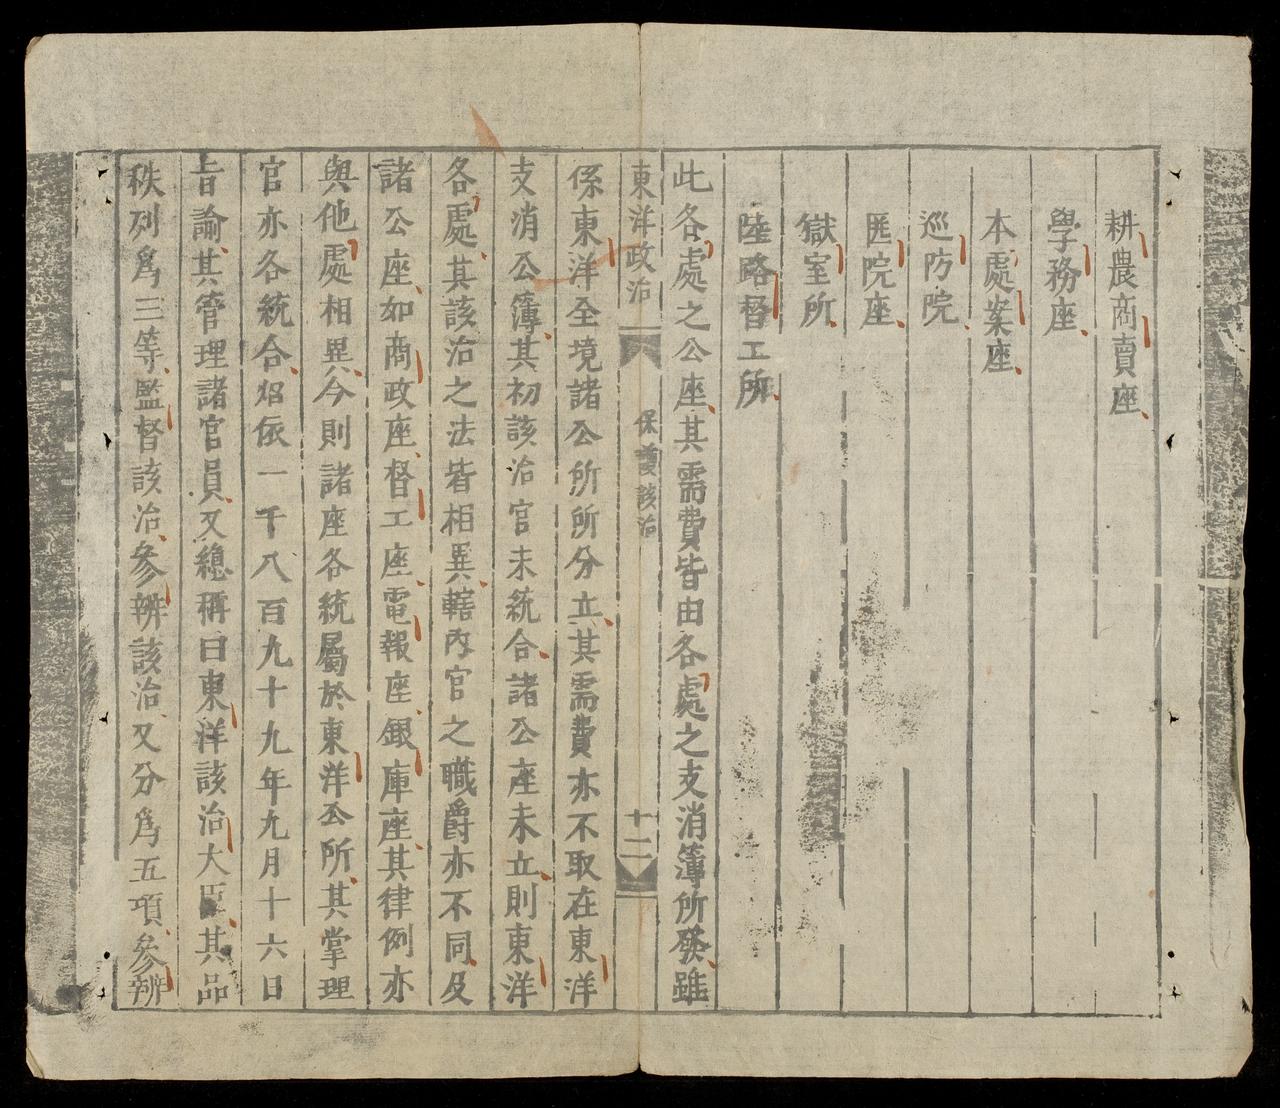 耕農商賣座
學務座
本處案座
巡防院
匪院座
獄室所
陸路督工所
此各處之公座其需費皆由各處之支消簿所發雖
東洋政治 保護該治 十二
係東洋全境諸公所所分立其需費亦不取在東洋
支消公簿其初該治官未統合諸公座未立則東洋
各處其該治之法皆相異轄內官之職爵亦不同及
諸公座如商政座督工座電報座銀庫座其律例亦
與他處相異今則諸座各統屬於東洋公所其掌理
官亦各統合炤依一千八百九十九年九月十六日
旨諭其管理諸官員又總稱曰東洋該治大臣其品
秩列爲三等監督該治參辨該治又分爲五項參辨